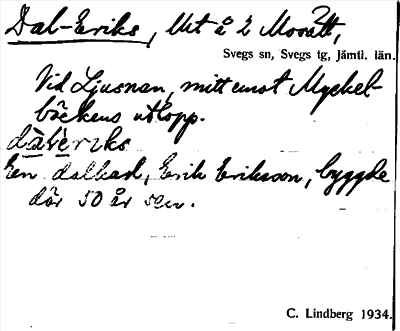 Dal-Eriks, Utå 2 Moratt,
Svegs sn, Svegs tg, Jämtl. län.
Vid Ljusnan, mitt emot Myckel-
bäckens utlopp.
dàl'èriks
En dalkarl, Erik Eriksson, byggde
där 50 år sen.
C. Lindberg 1934.